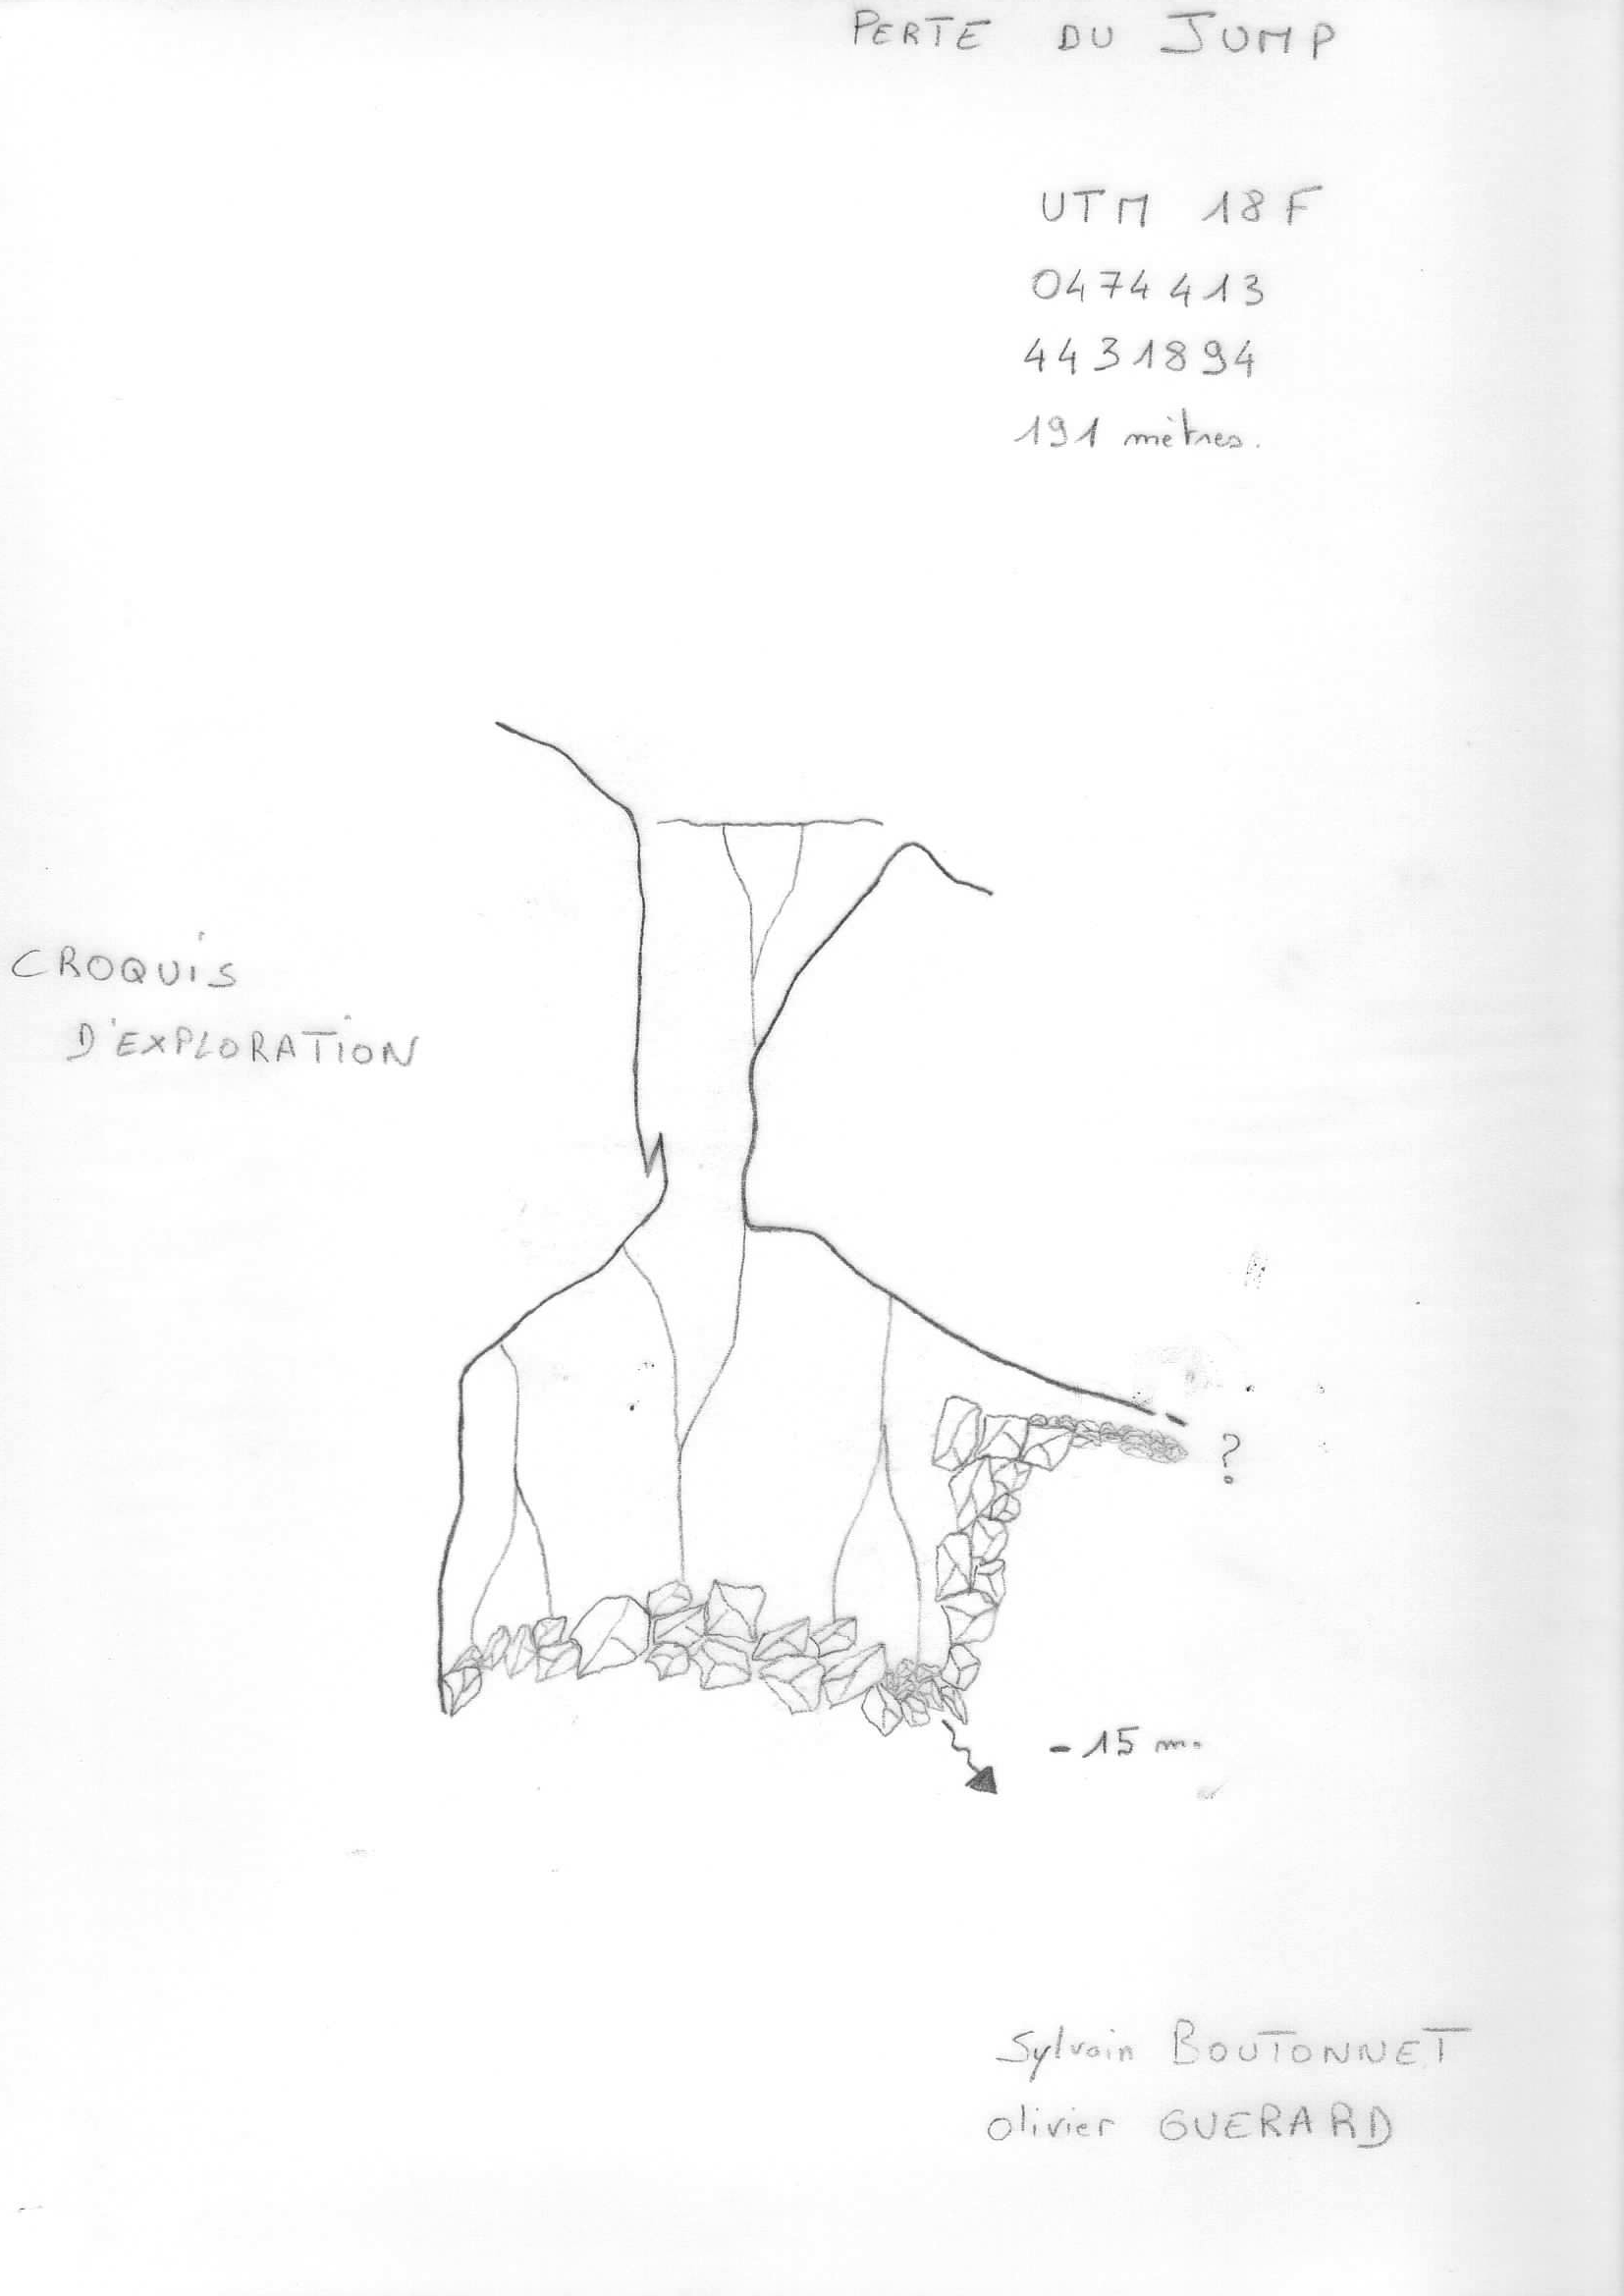 PERTE DU JUMP
UTM 18F
0474413
4431894
191 mètres.
CROQUIS
D'EXPLORATION
?
-15 m.
Sylvain BOUTONNET
Olivier GUERARD